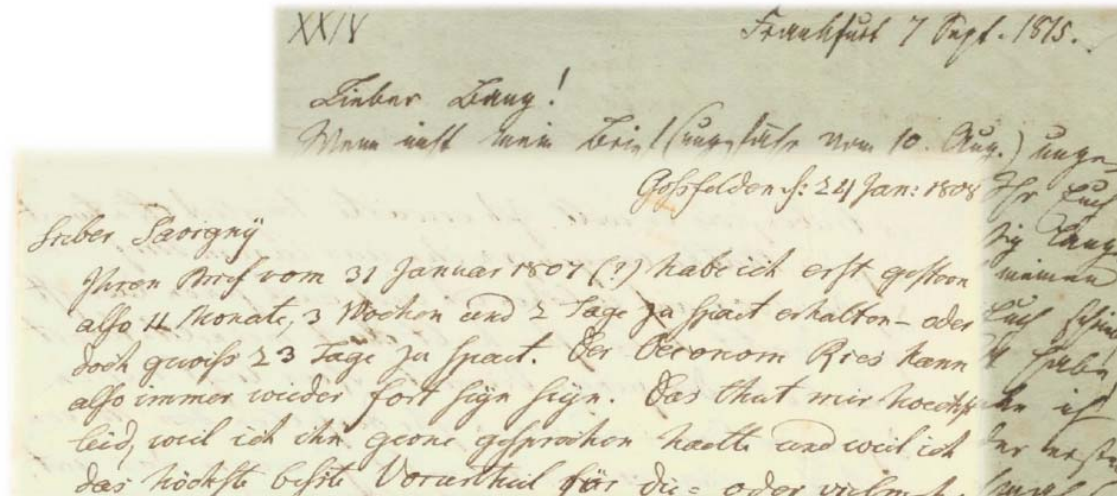 XXIV Frankfurt 7 Sept. 1815.
Lieber Bang!
Wenn nicht mein Brief (ungefähr vom 10. Aug.) unge-
Ihr Euch
meinen
Euch
habe
ich
Goßfelden d: 24 Jan: 1808
Lieber Savigny
Ihren Brief vom 31 Januar 1807 (?) habe ich erst gestern
also 11 Monate, 3 Wochen und 2 Tage zu spaet erhalten – oder
doch gewiß 23 Tage zu spaet. Der Oeconom Ries kann
also immer wieder fort seyn seyn. Das thut mir hoechst
leid, weil ich ihn gerne gesprochen haette und weil ich
das höchste beste Vorurtheil für die = oder